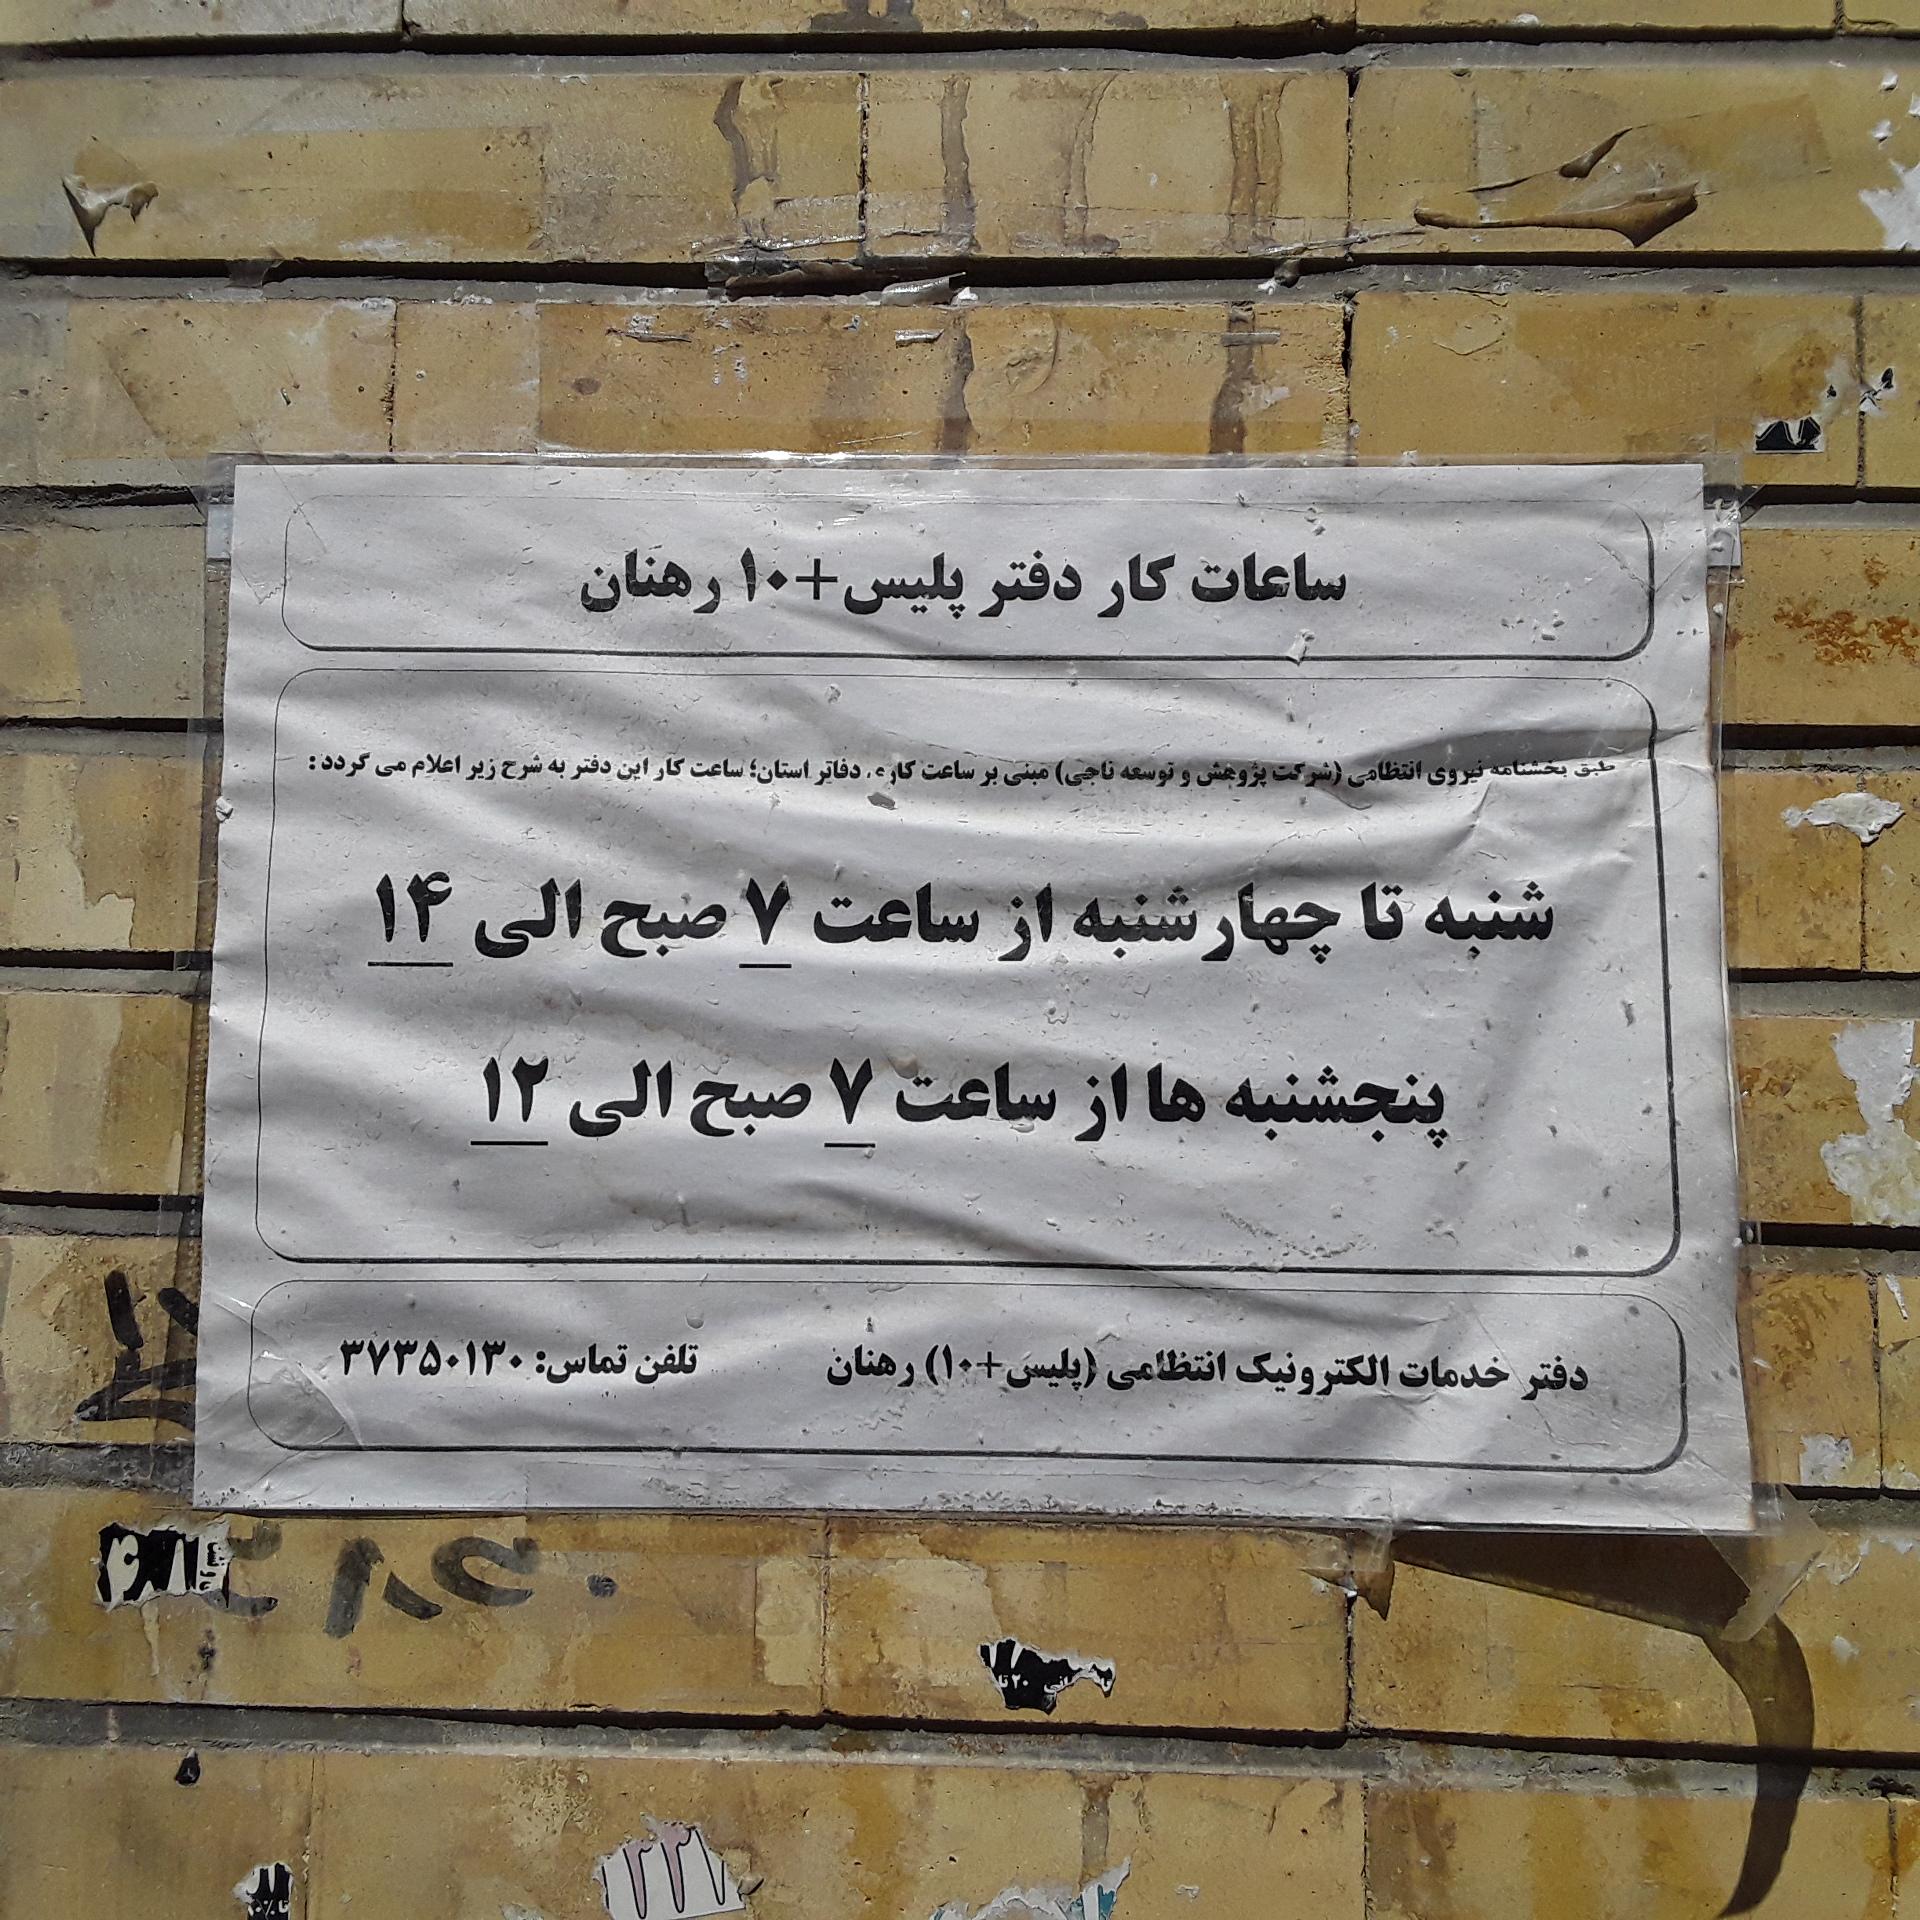 ساعات کار دفتر پلیس+۱۰ رهنان
طبق بخشنامه نیروی انتظامی (شرکت پژوهش و توسعه ناجی) مبنی بر ساعت کاری دفاتر استان؛ ساعت کار این دفتر به شرح زیر اعلام می گردد :
شنبه تا چهارشنبه از ساعت ۷ صبح الی ۱۴
پنجشنبه ها از ساعت ۷ صبح الی ۱۲
دفتر خدمات الکترونیک انتظامی (پلیس+۱۰) رهنان تلفن تماس: ۳۷۳۵۰۱۳۰